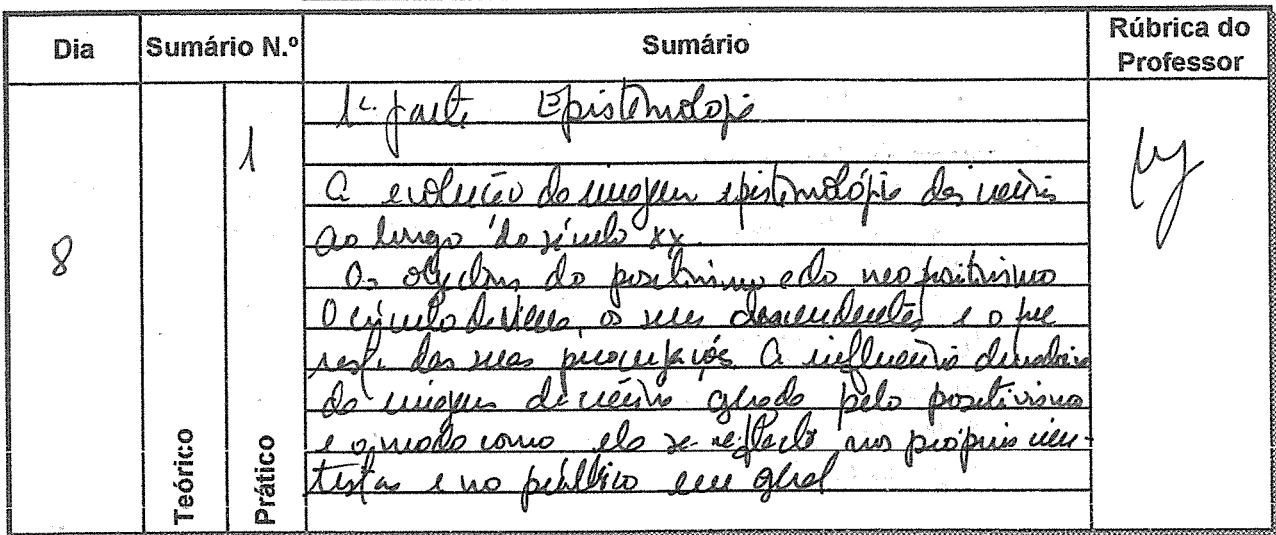 Dia Sumário N.º Sumário Rúbrica do Professor
8
1
Teórico
Prático
1ª parte Epistemologia
A evolução da imagem epistemológica das ciências
ao longo do século XX.
Os objectivos do positivismo e do neopositivismo
O círculo de Viena, os seus descendentes e o que
resta das suas preocupações. A influência duradoira
da imagem de ciência gerada pelo positivismo
e o modo como ela se reflecte nos próprios cien-
tistas e no público em geral